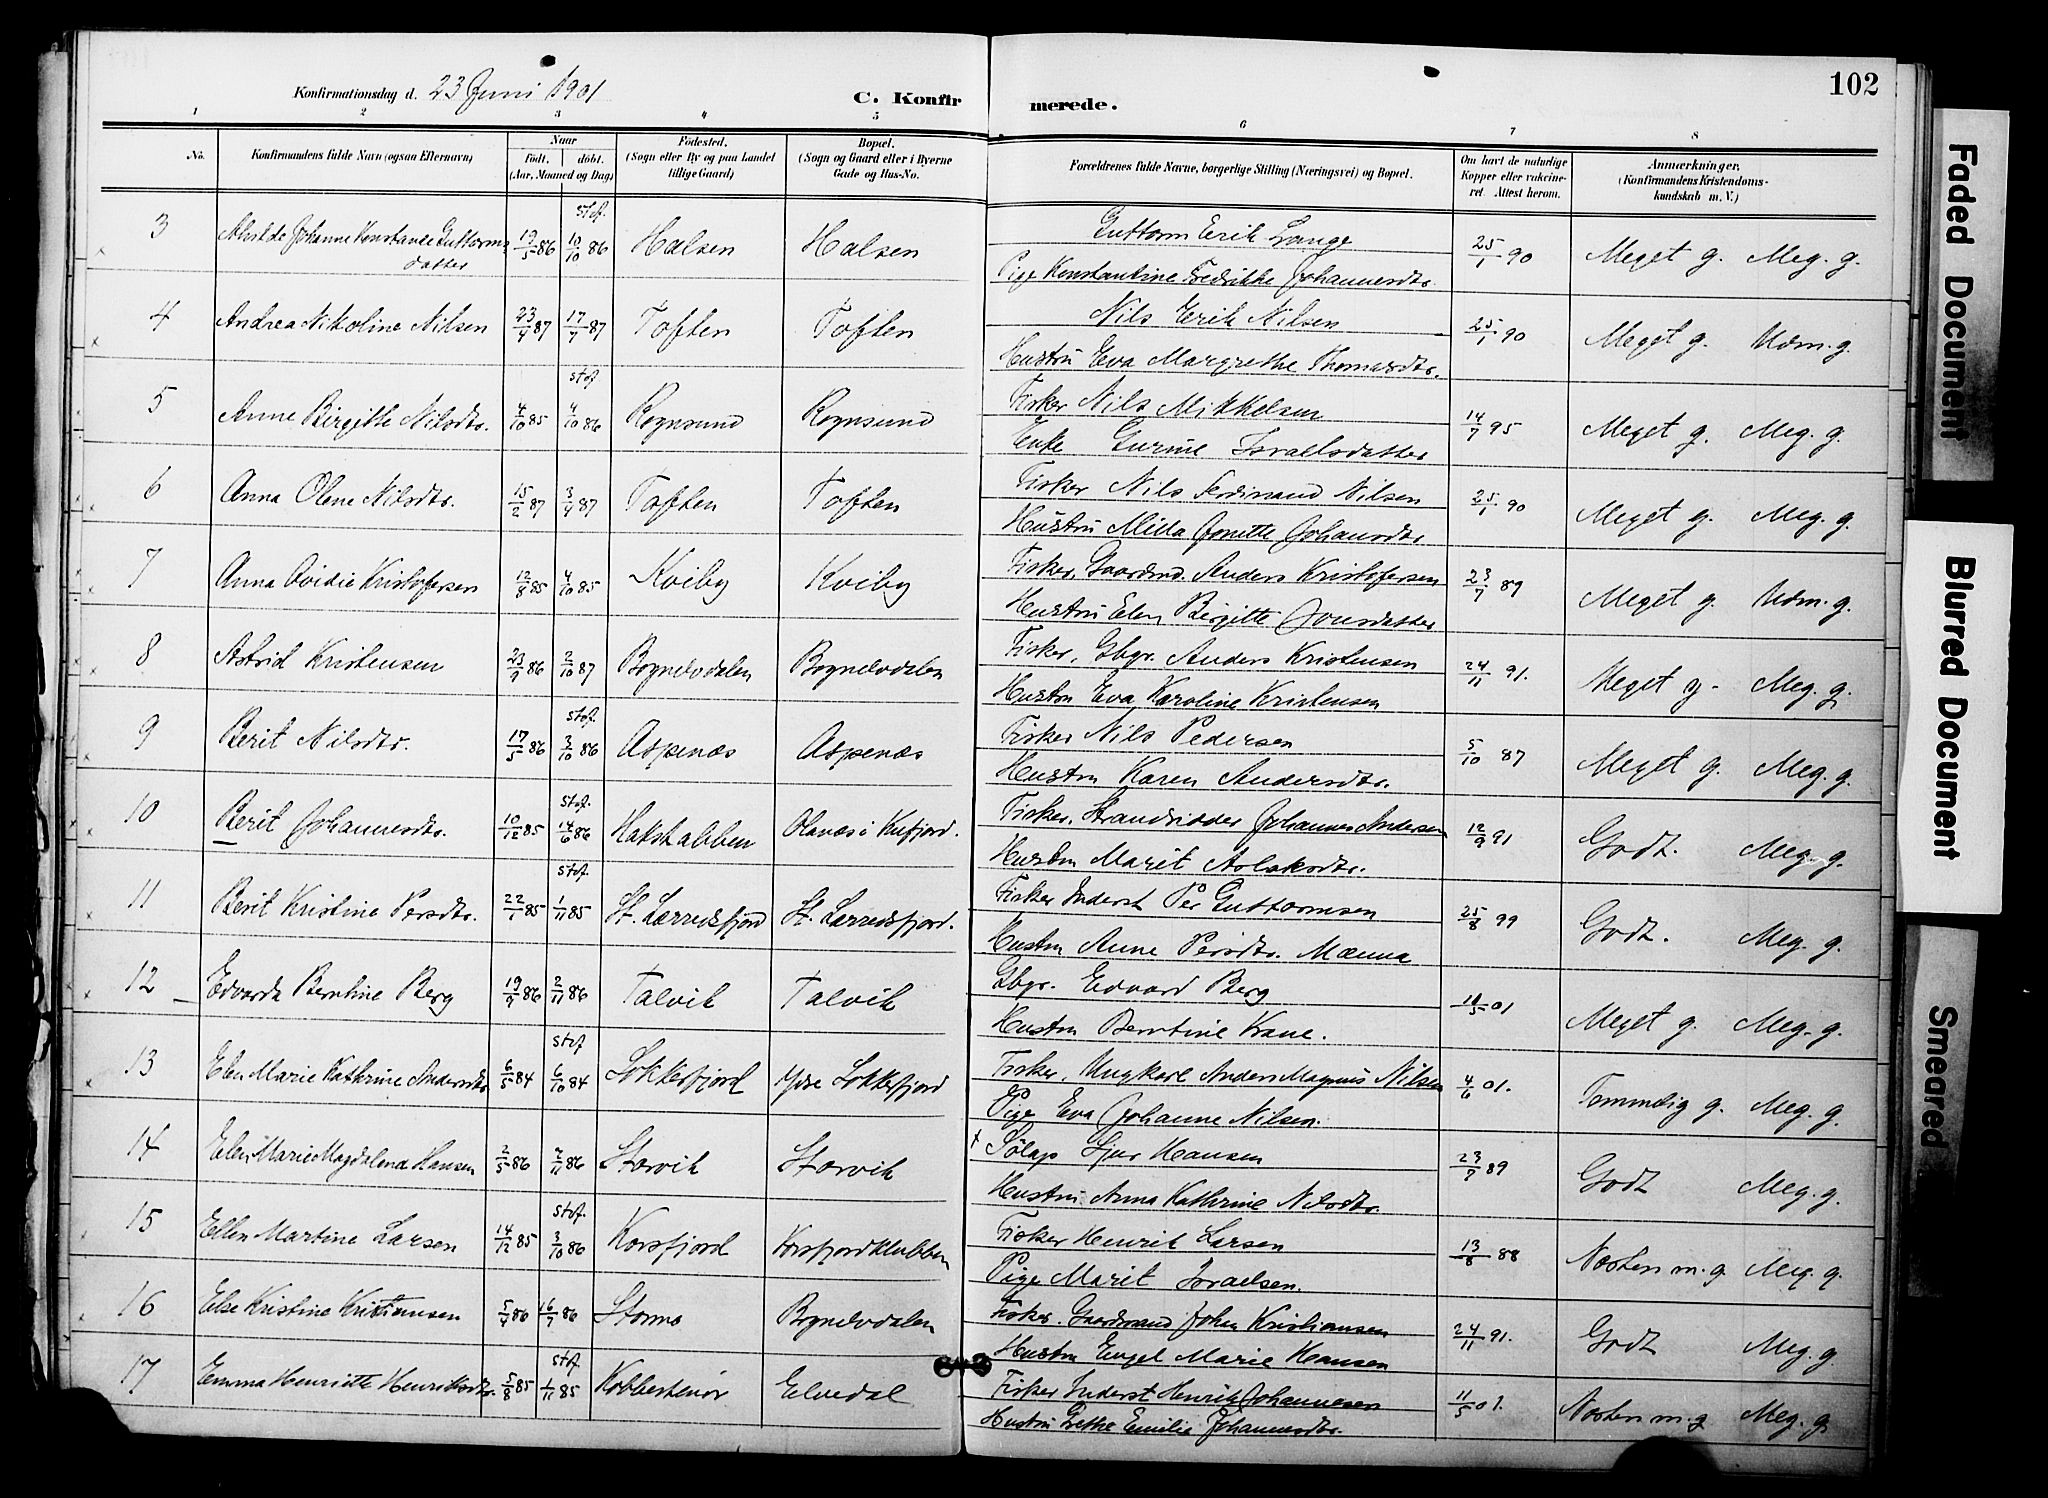 Konfirmationsdag d. 23 Juni 1901
C. Konfirmerede.
102
1 2 3 4 5 6 7 8
No.
Konfirmandens fulde Navn (ogsaa Efternavn)
Naar
født. døbt.
(Aar, Maaned og Dag)
Fødested.
(Sogn eller By og paa Landet
tillige Gaard)
Bopæl.
(Sogn og Gaard eller i Byerne
Gade og Hus-No.
Forældrenes fulde Navne, borgerlige Stilling (Næringsvei) og Bopæl.
Om havt de naturlige
Kopper eller vakcine-
ret. Attest herom.
Anmærkninger,
(Konfirmandens Kristendoms-
kundskab m. V.)
3 Johanne Konstanse Guttorms datter 19/5 86 stof. 10/10 86 Halsen Halsen
Guttorm Erik Lange
Pige Konstantine Fredrikke Johannesdtr. 25/1 90 Meget g. Meg. g.
4 Andrea Nikoline Nilsen 23/4 87 17/7 87 Toften Toften
Nils Erik Nilsen
Hustru Eva Margrethe Thomasdtr. 25/1 90 Meget g. Udm. g.
5 Anne Birgitte Nilsdtr. 4/10 85 stof 4/10 86 Rognsund Rognsund
Fisker Nils Mikkelsen
Enke Gurine Israelsdatter 14/7 95 Meget g. Meg. g.
6 Anna Oline Nilsdtr. 15/2 87 3/4 87 Toften Toften
Fisker Nils Ferdinand Nilsen
Hustru Alida Jonette Johansdtr. 25/1 90 Meget g. Meg. g.
7 Anna Ovidie Kristofersen 12/8 85 4/10 85 Kviby Kviby
Fisker, Gaardmd. Anders Kristofersen
Hustru Elen Birgitte Jonsdatter 23/7 89 Meget g. Udm. g.
8 Astrid Kristensen 23/9 86 2/10 87 Bognelvdalen Bognelvdalen
Fisker, Gbgr. Anders Kristensen
Hustru Eva Karoline Kristensen 24/11 91. Meget g. Meg. g.
9 Berit Nilsdtr. 17/5 86 stof. 3/10 86 Aspenæs Aspenæs
Fisker Nils Pedersen
Hustru Karen Andersdtr. 5/10 87 Meget g. Meg. g.
10 Berit Johannesdtr. 10/12 85 stof. 14/6 86 Hakstabben Olanæs i Kufjord.
Fisker, Strandsidder Johannes Andersen
Hustru Marit Aslaksdtr. 12/9 91 Godt. Meg. g.
11 Berit Kristine Persdtr. 22/1 85 stof. 1/11 85 St. Lerredsfjord St. Lerredsfjord.
Fisker Inderst Per Guttormsen
Hustru Anne Persdtr. Mænna 25/8 99 Godt. Meg. g.
12 Edvarda Berntine Berg 19/9 86 2/11 86 Talvik Talvik
Gbgr. Edvard Berg
Hustru Berntine Krane. 10/5 01 Meget g. Meg. g.
13 Elen Marie Kathrine Andersdtr 6/5 84 stof 6/10 84 Lokkefjord Ytre Lokkefjord
Fisker, Ungkarl Anders Magnus Nilsen
Pige Eva Johanne Nilsen. 4/6 01. Temmelig g. Meg. g.
14 Elen Marie Magdalena Hansen 2/5 86 2/11 86 Storvik Storvik
x Sölap Sjur Hansen
Hustru Anna Kathrine Nilsdtr. 23/7 89 Godt Meg. g.
15 Ellen Martine Larsen 14/12 85 stof. 3/10 86 Korsfjord Korsfjordklubben
Fisker Henrik Larsen
Pige Marit Israelsen. 13/8 88 Næsten m. g Meg. g.
16 Else Kristine Kristiansen 5/4 86 16/7 86 Bognelvdalen
Fisker. Gaardmand Johan Kristiansen
Hustru Engel Marie Hansen 24/11 91. Godt Meg. g
17 Emma Henriette Henriksdtr. 5/8 85 stof 1/11 85 Kobbestenør Elvedal
Fisker Inderst Henrik Johannesen
Hustru Grethe Emilie Johannesdtr. 11/5 01. Næsten m. g Meg. g.
Faded Document
Blurred Document
Smeared